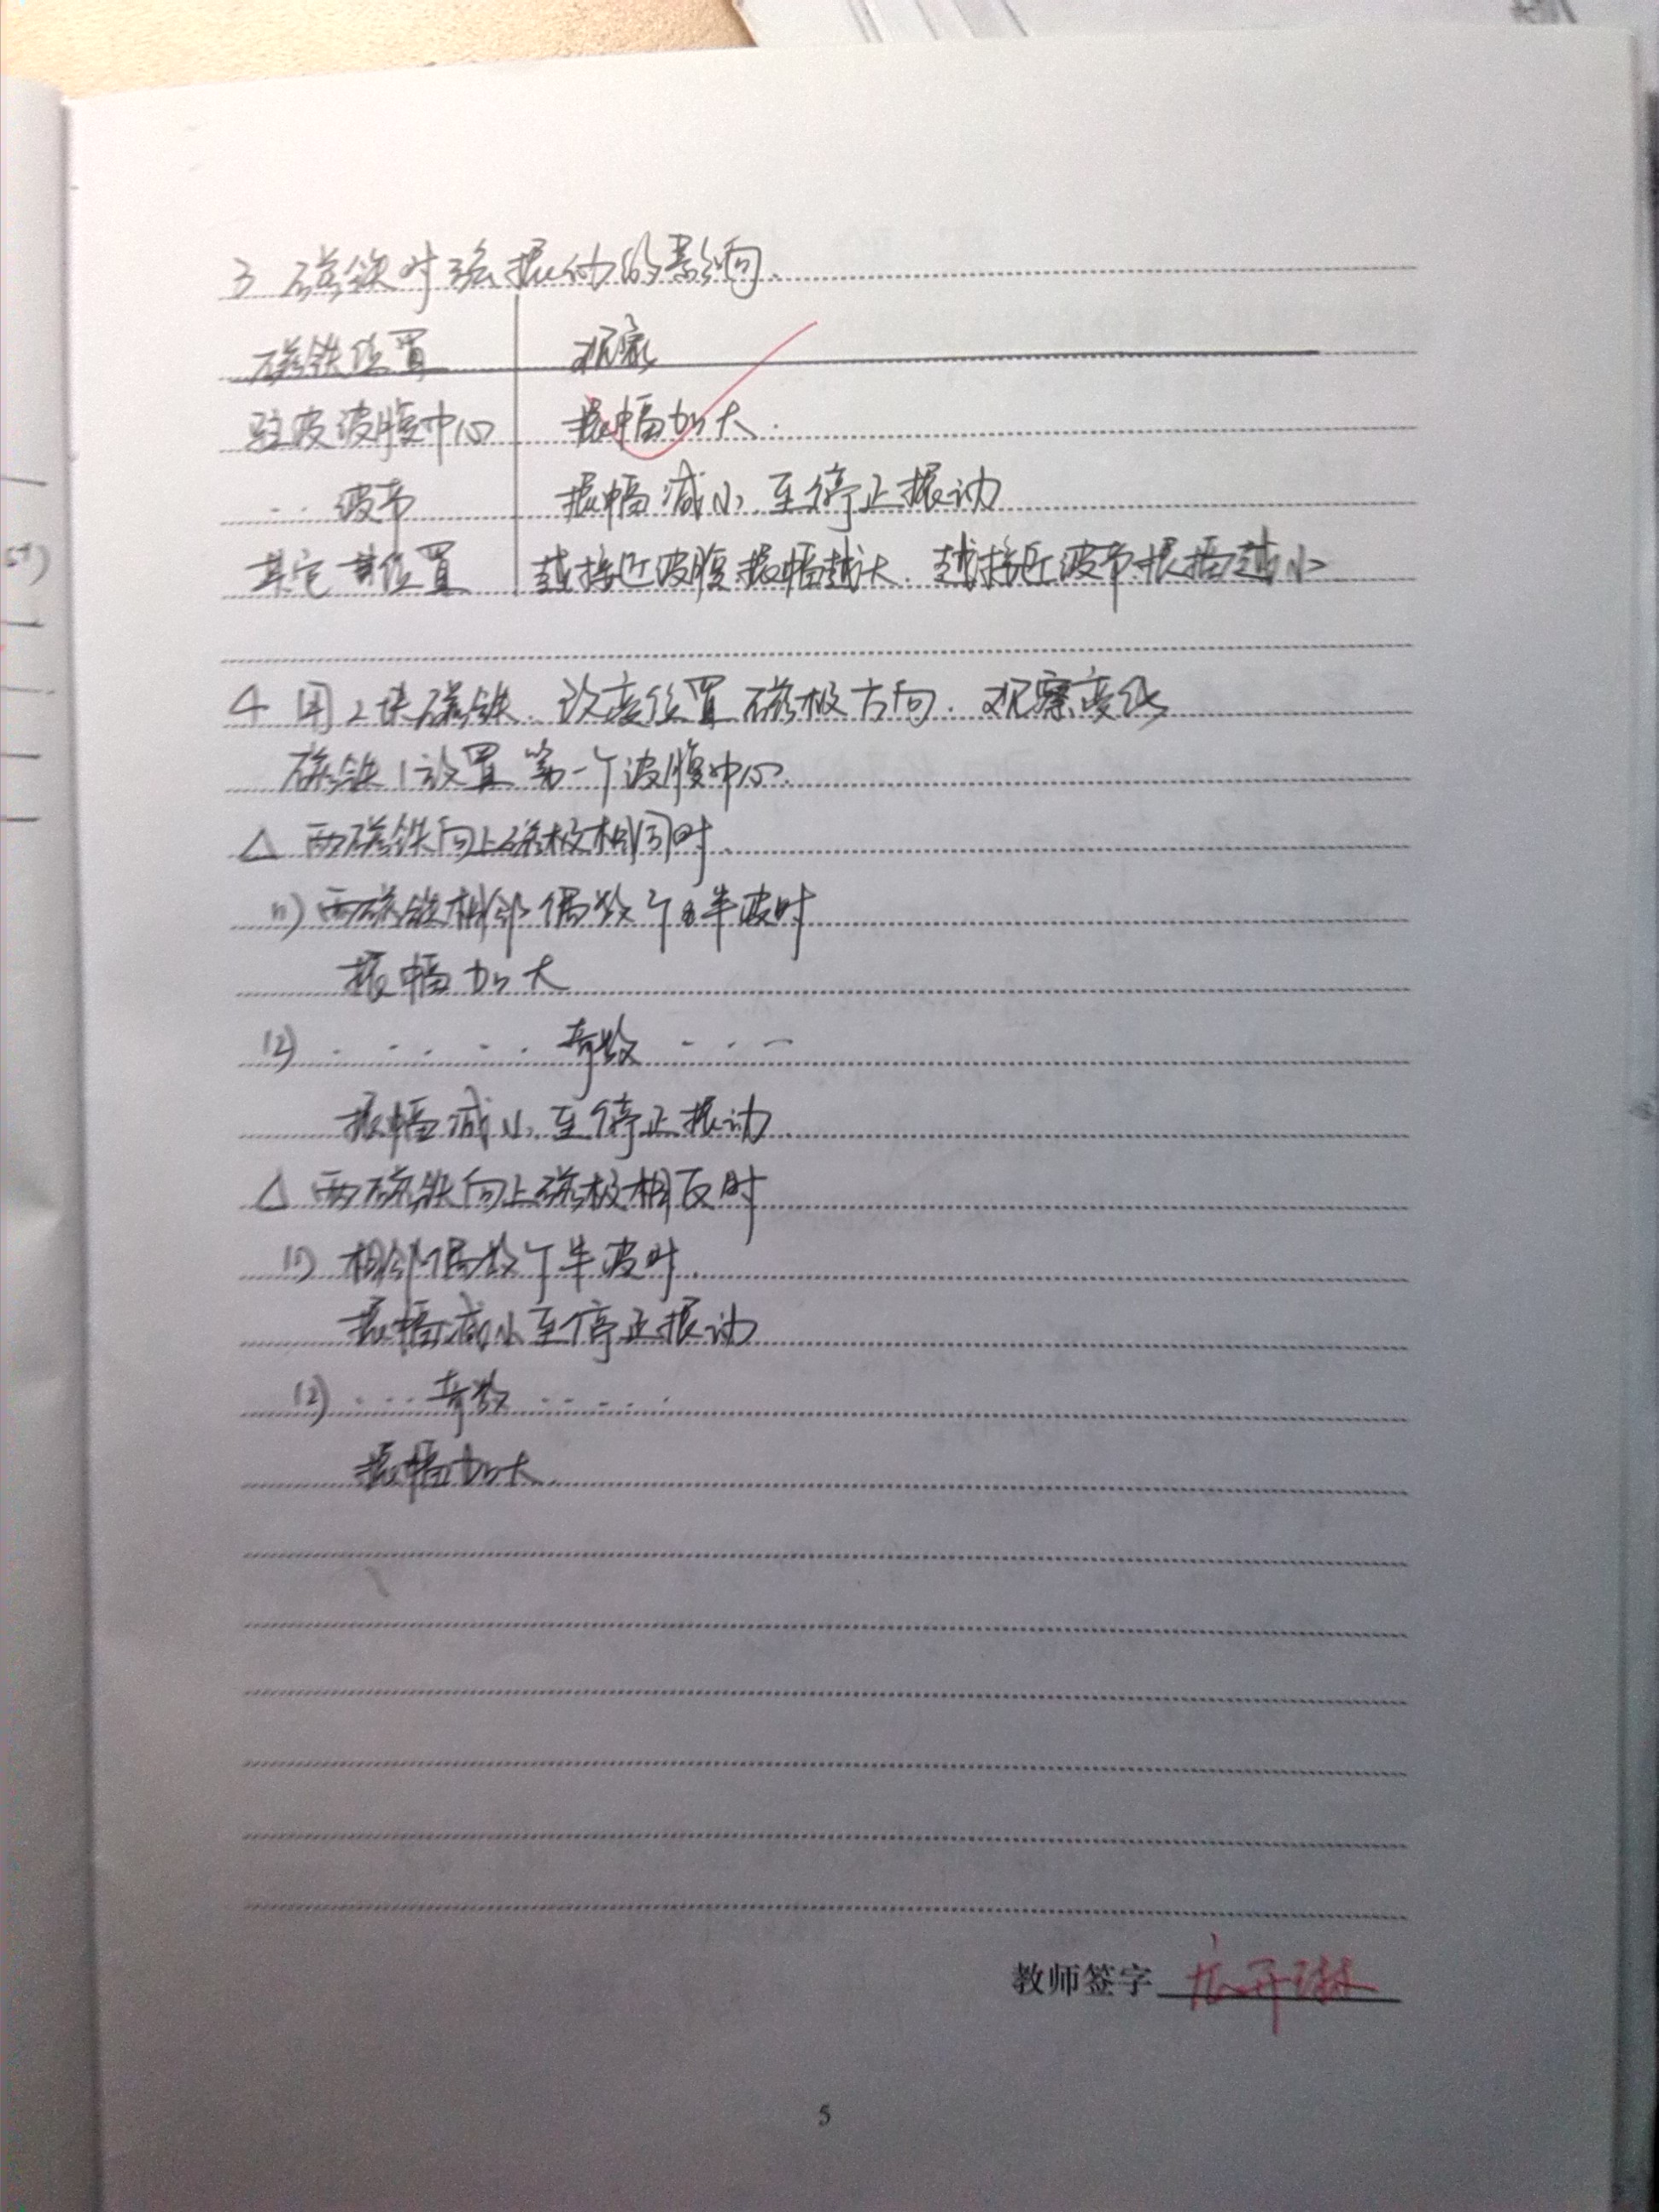 3 磁铁对弦振动的影响.
磁铁位置 观察
驻波波腹中心 振幅加大.
.. 波节 振幅减小至停止振动
其它位置 越接近波腹振幅越大. 越接近波节振幅越小
4 用2块磁铁. 改变位置磁极方向. 观察变化
磁铁1放置第一个波腹中心.
△ 两磁铁向上磁极相同时.
(1) 两磁铁相邻偶数个半波时
振幅加大
(2) . . . . . . 奇数 . . . .
振幅减小至停止振动
△ 两磁铁向上磁极相反时
(1) 相邻偶数个半波时.
振幅减小至停止振动
(2) . . . 奇数 . . . . . .
振幅加大.
教师签字
5